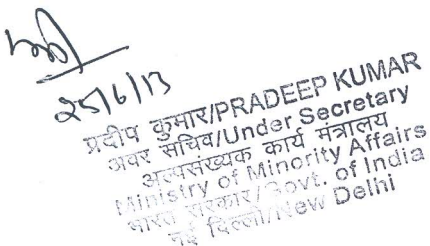 25/6/13
प्रदीप कुमार/PRADEEP KUMAR
अवर सचिव/Under Secretary
अल्पसंख्यक कार्य मंत्रालय
Ministry of Minority Affairs
भारत सरकार/Govt. of India
नई दिल्ली/New Delhi